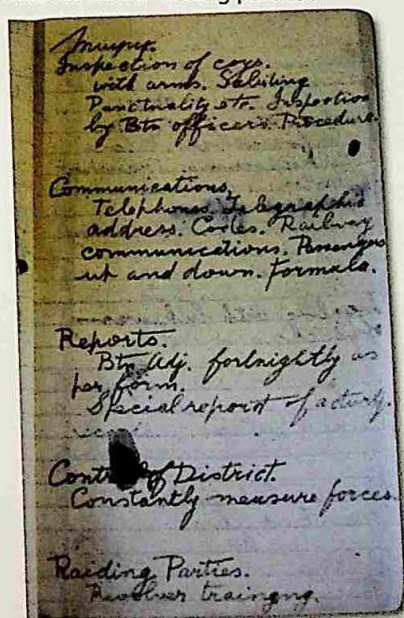 Inspection of coys.
with arms. Saluting
Punctuality etc. Inspection
by Btn officers. Procedure.
Communications.
Telephones. Telegraphic
address. Codes. Railway
communications. Passengers
up and down. Formula.
Reports.
Btn Adj. fortnightly as
per form.
Special report of
Control of District.
Constantly measure forces.
Raiding Parties.
Revolver traingng.